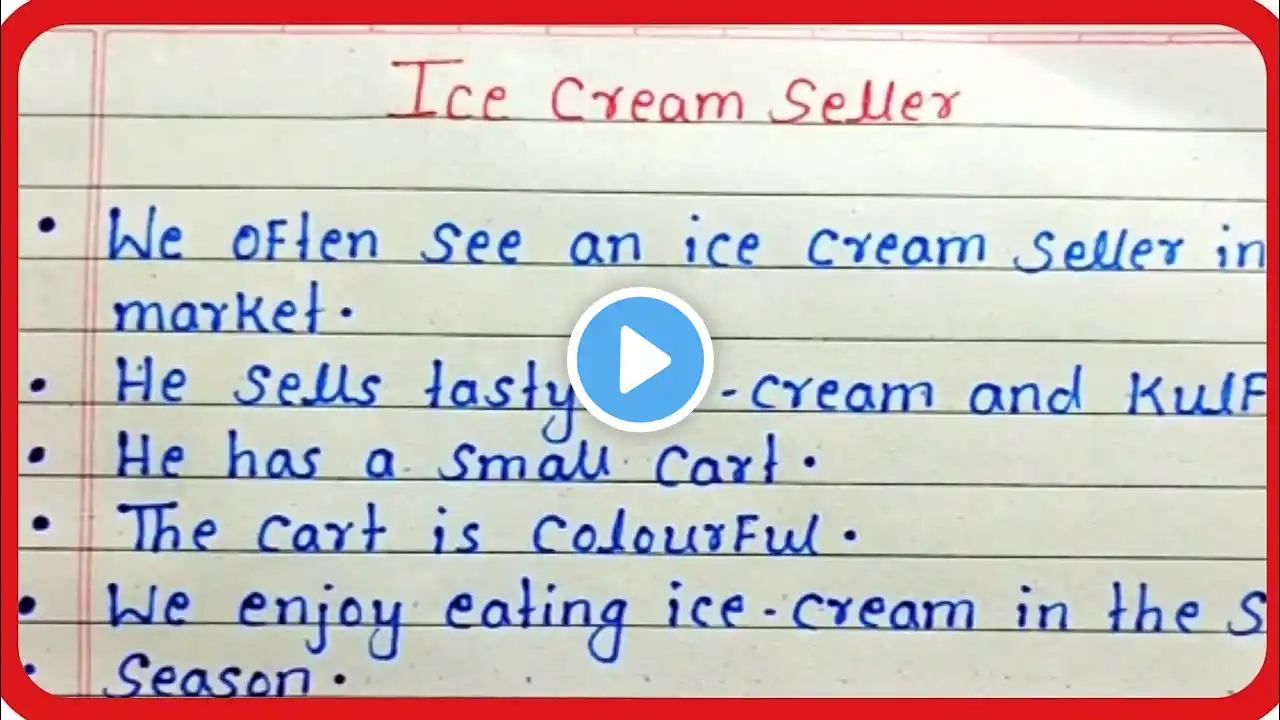 Ice Cream Seller
• We often see an ice cream seller in
market.
• He sells tasty -cream and Kulf
• He has a small cart.
• The cart is colourful.
• We enjoy eating ice-cream in the S
• Season.